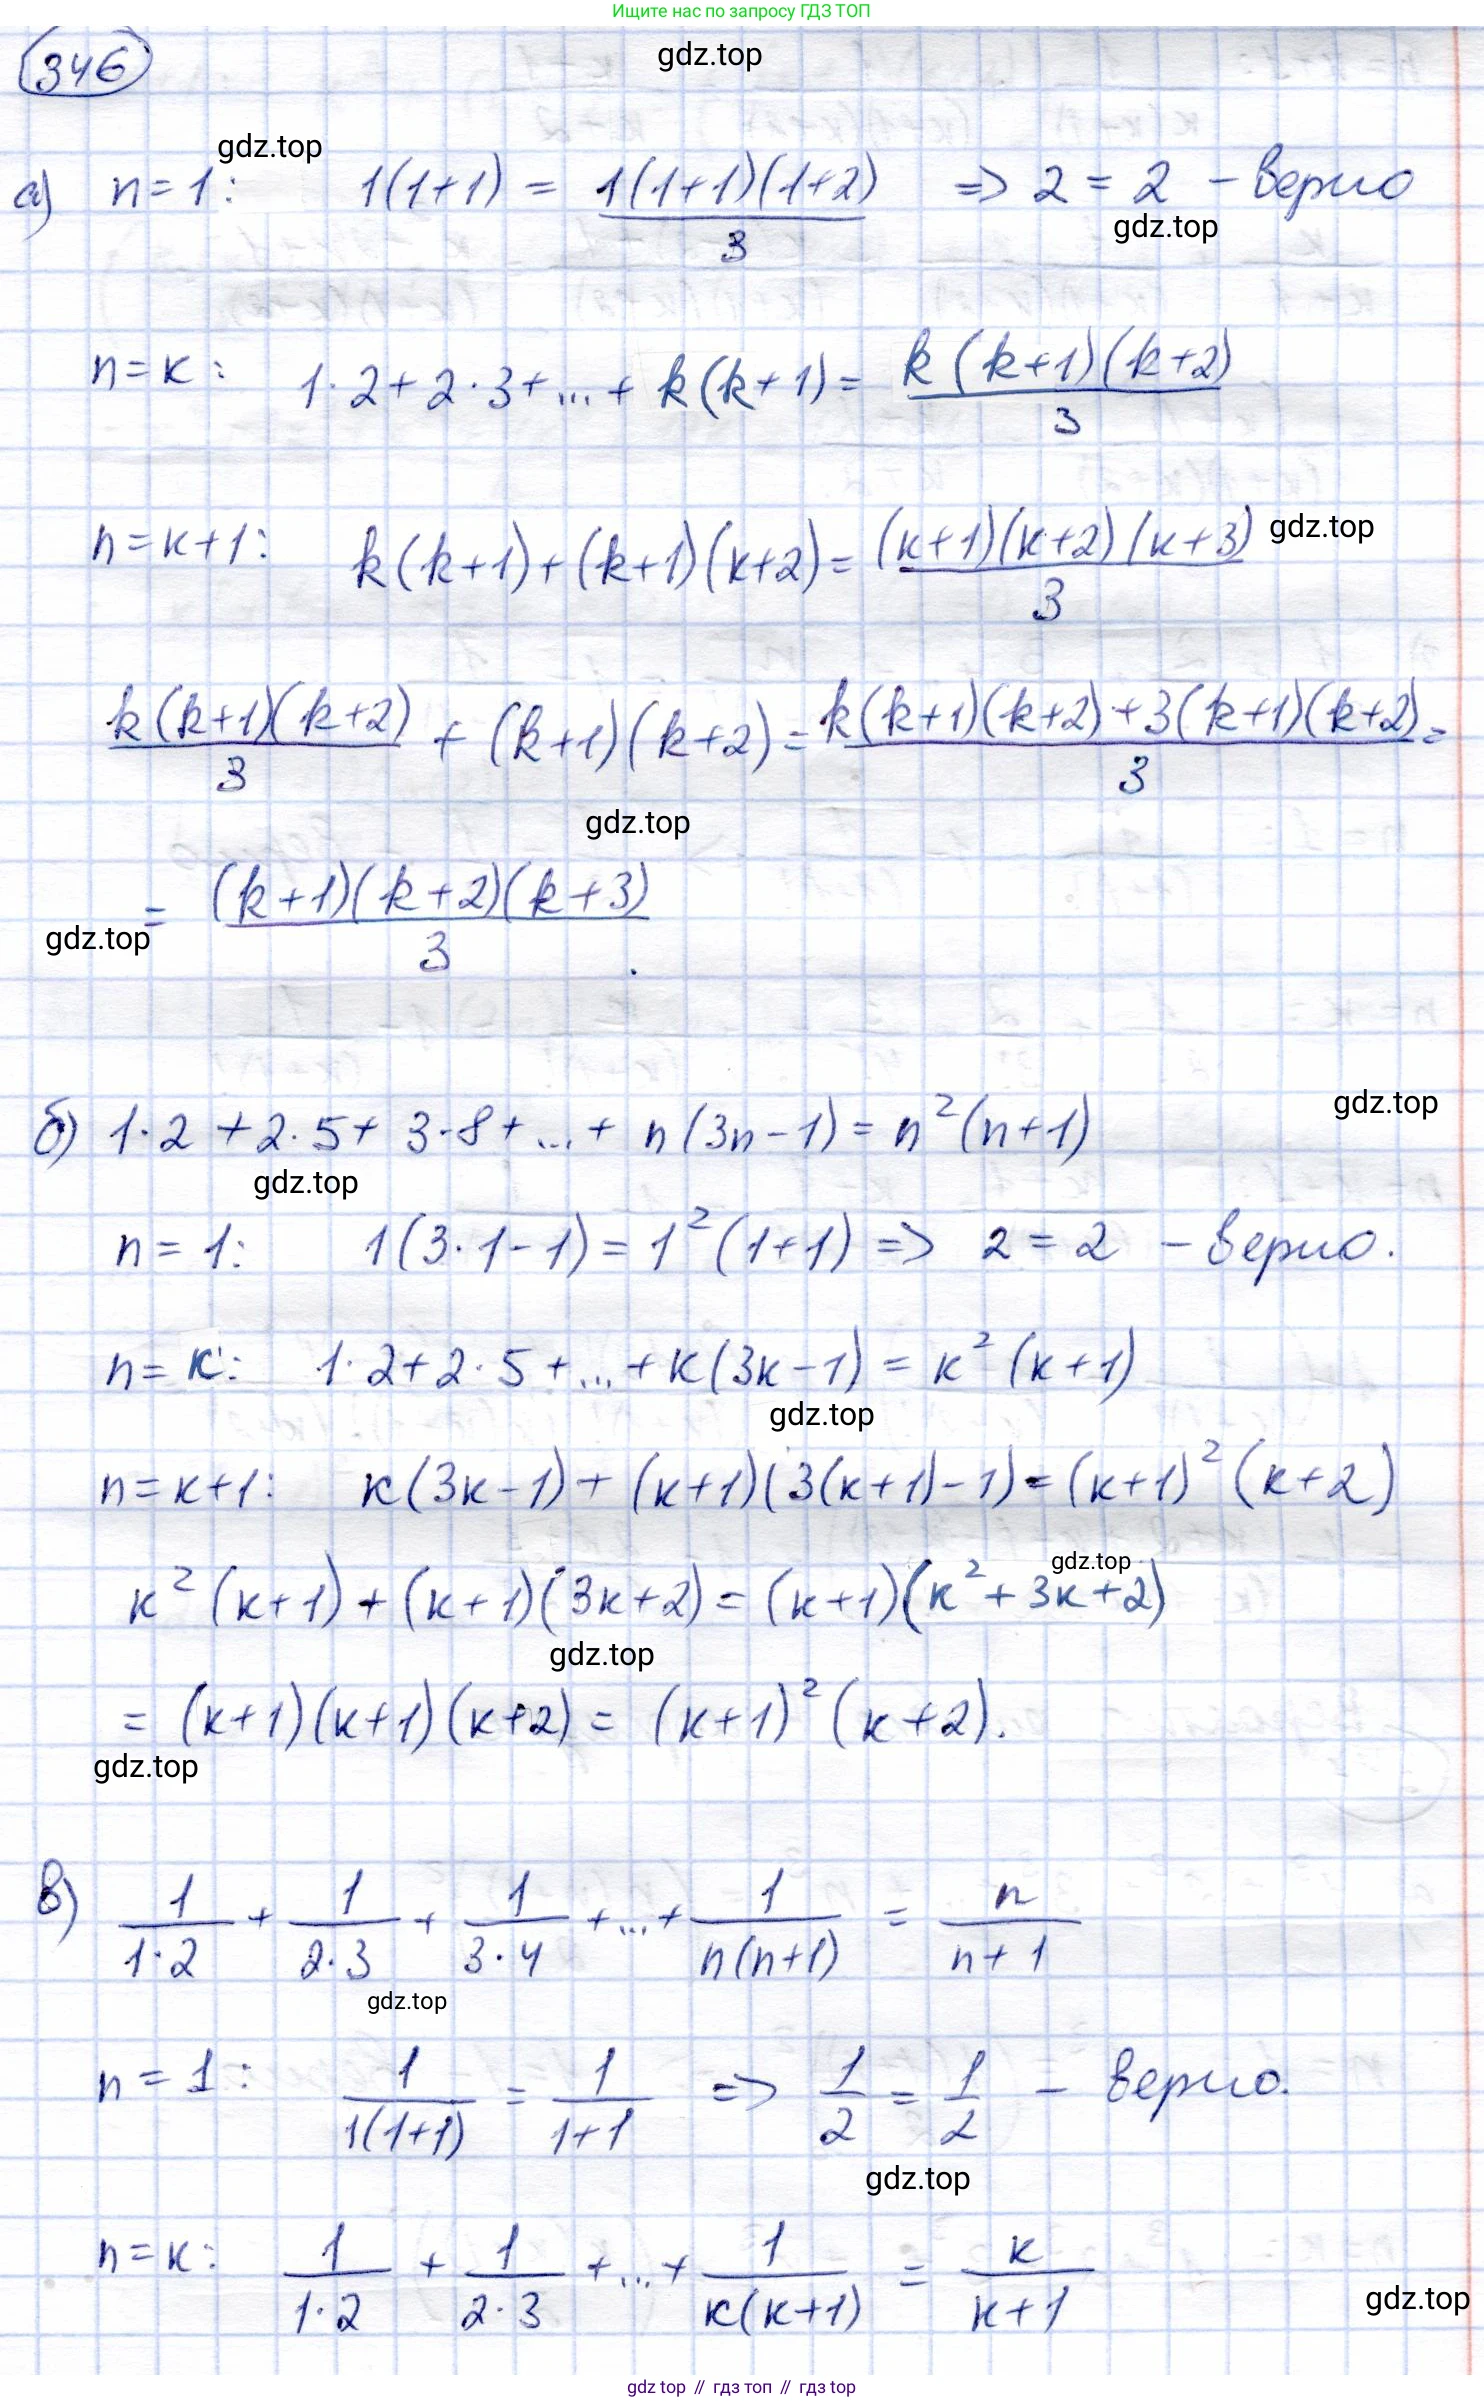 Ищите нас по запросу ГДЗ ТОП
346
gdz.top
gdz.top
а) n=1: 1(1+1) = 1(1+1)(1+2)/3 => 2 = 2 - верно
gdz.top
n=к: 1·2+2·3+...+ k(k+1) = k(k+1)(k+2)/3
n=к+1: k(k+1)+(k+1)(к+2) = (к+1)(к+2)(к+3)/3 gdz.top
k(k+1)(k+2)/3 + (k+1)(k+2) = k(k+1)(k+2)+3(k+1)(k+2)/3 =
gdz.top
= (k+1)(k+2)(k+3)/3.
gdz.top
gdz.top
б) 1·2 + 2·5 + 3·8 + ... + n(3n-1) = n²(n+1)
gdz.top
n = 1: 1(3·1-1) = 1²(1+1) => 2 = 2 - верно.
n = к: 1·2+2·5+...+к(3к-1) = к²(к+1)
gdz.top
n=к+1: к(3к-1)+(к+1)(3(к+1)-1) = (к+1)²(к+2)
gdz.top
к²(к+1)+(к+1)(3к+2) = (к+1)(к²+3к+2)
gdz.top
= (к+1)(к+1)(к+2) = (к+1)²(к+2).
gdz.top
в) 1/1·2 + 1/2·3 + 1/3·4 + ... + 1/n(n+1) = n/n+1
gdz.top
n = 1: 1/1(1+1) = 1/1+1 => 1/2 = 1/2 - верно.
gdz.top
n=к: 1/1·2 + 1/2·3 + ... + 1/к(к+1) = к/к+1
gdz.top
gdz top // гдз топ // гдз top